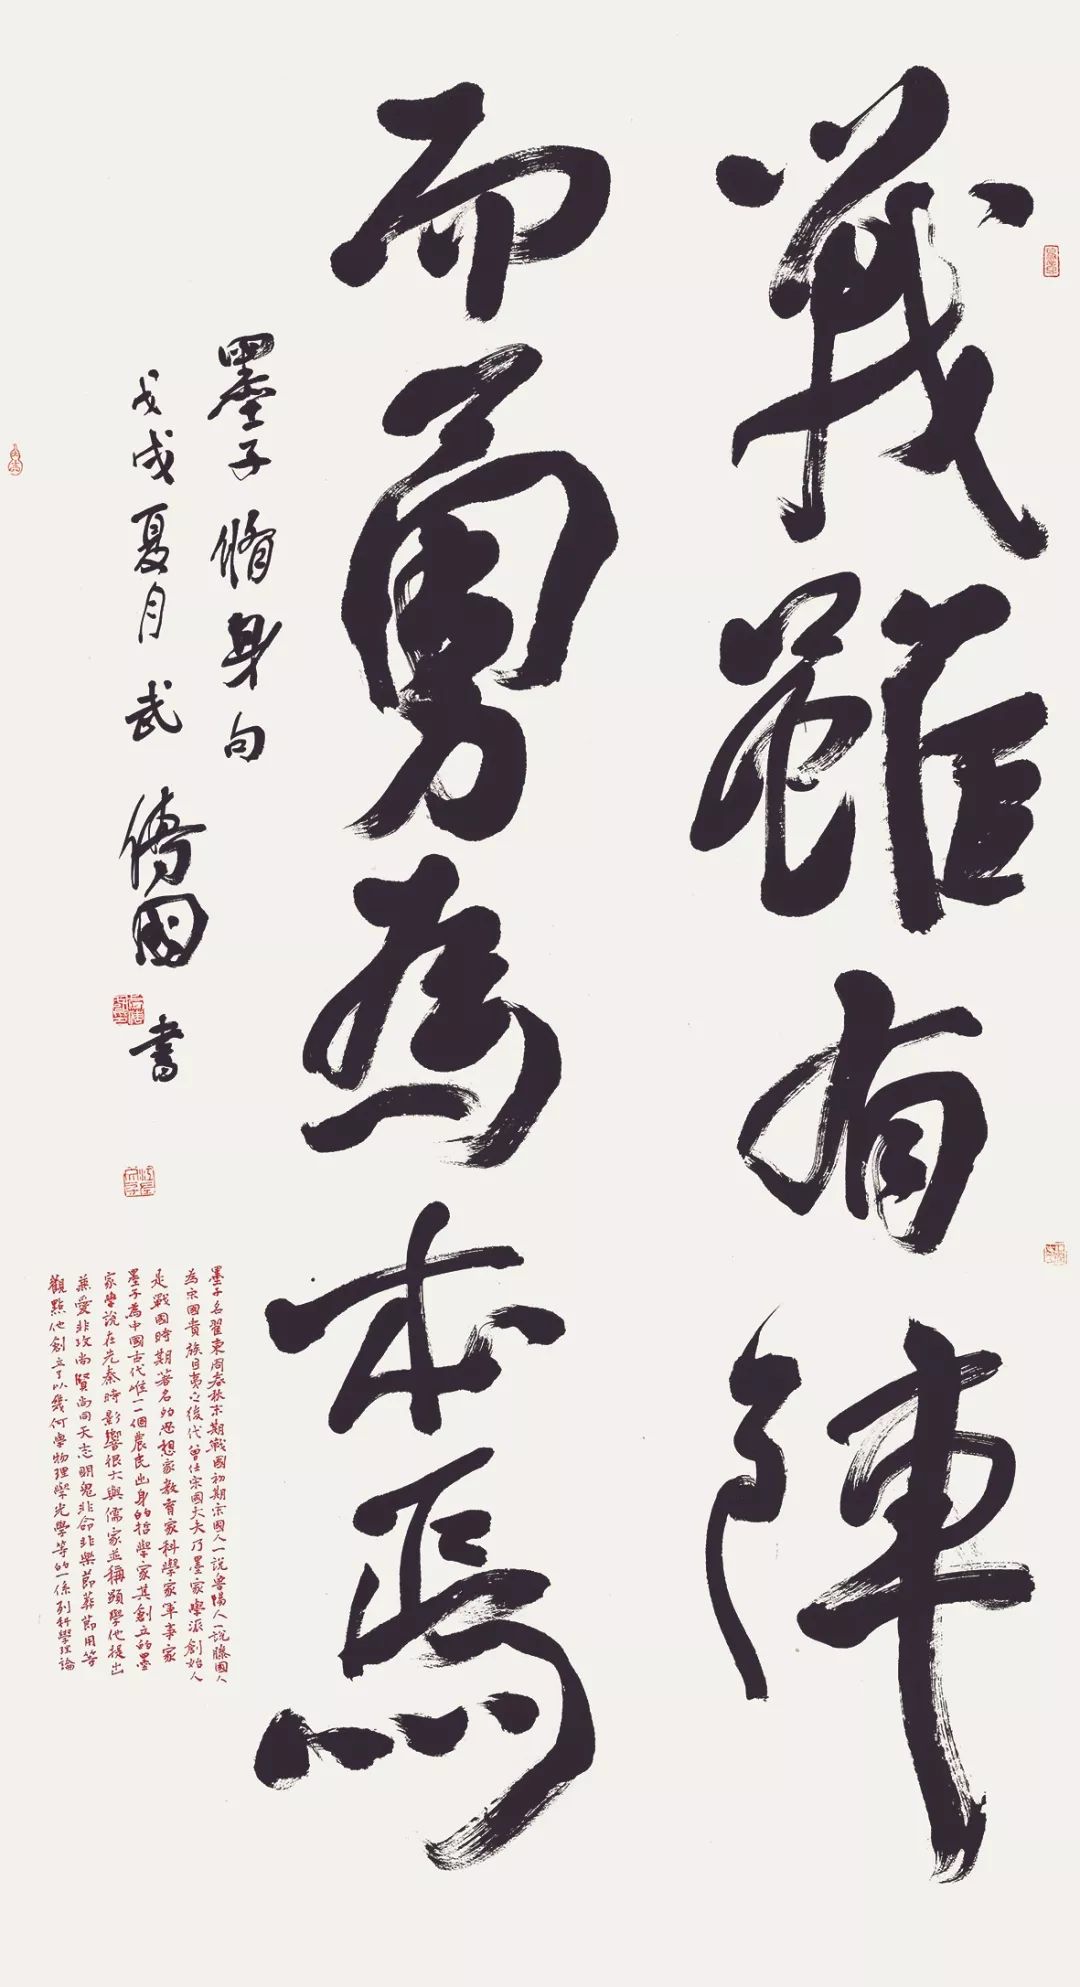 戰雖有陣
而勇為本焉
墨子脩身句
戊戌夏月武傳國書
墨子名翟東周春秋末期戰國初期宗國人一說魯陽人一說滕國人
為宋國貴族目夷之後代曾仕宋國大夫乃墨家學派創始人
是戰國時期著名的思想家教育家科學家軍事家
墨子為中國古代唯一一個農民出身的哲學家其創立的墨
家學說在先秦時影響很大與儒家並稱顯學他提出
兼愛非攻尚賢尚同天志明鬼非命非樂節葬節用等
觀點他創立了以幾何學物理學光學等的一係列科學理論